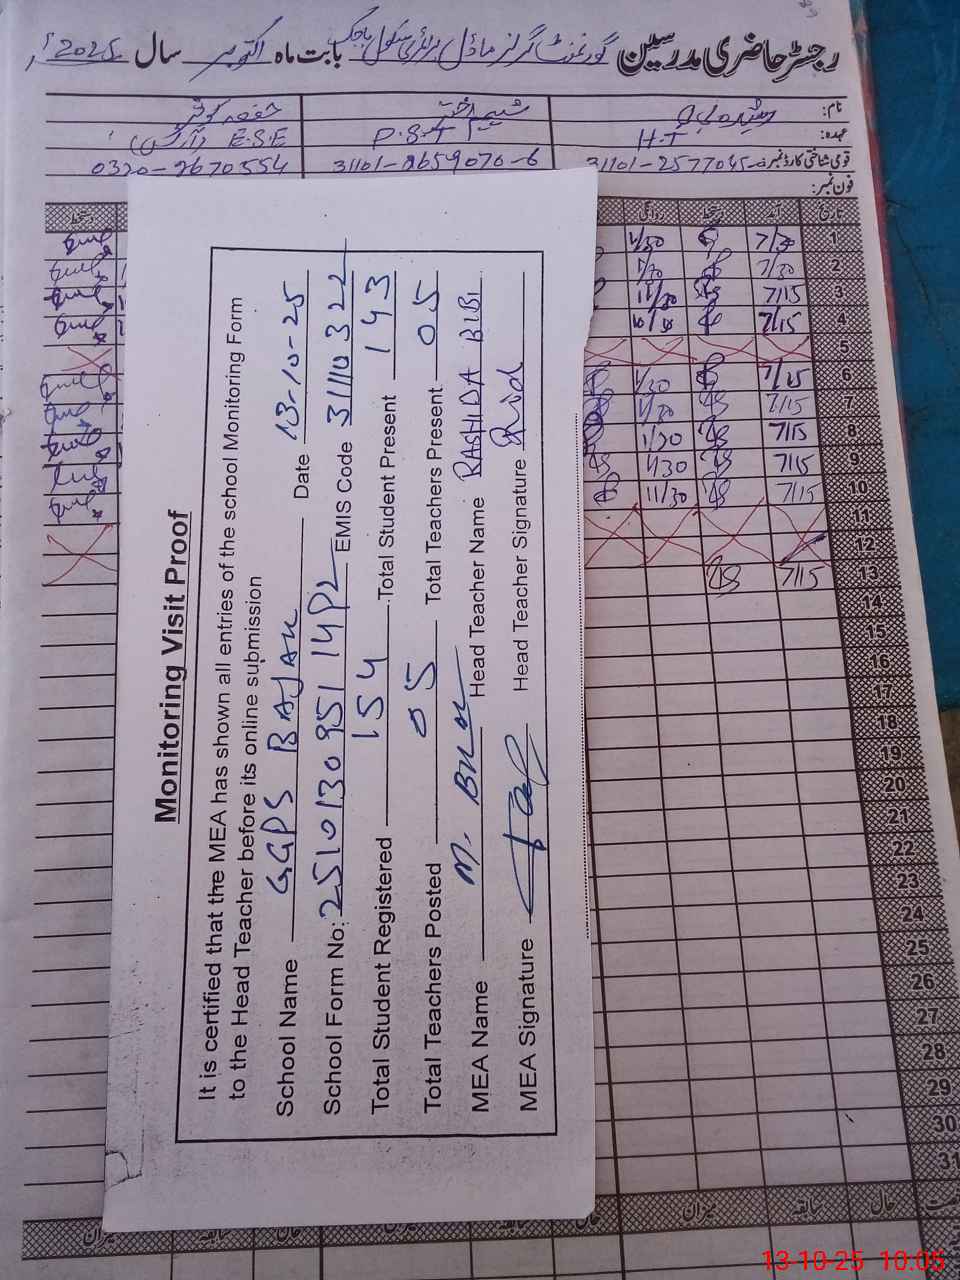 رجسٹر حاضری مدرسین گورنمنٹ گرلز ماڈل پرائمری سکول باجک بابت ماہ اکتوبر سال 2025ء
نام: شمیم اختر
عہدہ: H.T P.S.T E.S.E (آرٹس)
قومی شناختی کارڈ نمبر: 31101-2659070-6 0320-2670554
فون نمبر:
تاریخ آمد دستخط روانگی دستخط
1 7/30 1/30
2 7/30 1/30
3 7/15 11/30
4 7/15
5
6 7/15 1/30
7 7/15 1/30
8 7/15 1/30
9 7/15 1/30
10 7/15 11/30
11
12
13 7/15
14
15
16
17
18
19
20
21
22
23
24
25
26
27
28
29
30
31
حال سابقہ میزان حال سابقہ حال سابقہ میزان
Monitoring Visit Proof
It is certified that the MEA has shown all entries of the school Monitoring Form
to the Head Teacher before its online submission
School Name GGPS BAJAK Date 13-10-25
School Form No: 251013095114P2 EMIS Code 31110322
Total Student Registered 154 Total Student Present 143
Total Teachers Posted 05 Total Teachers Present 05
MEA Name M. Head Teacher Name RASHIDA BIBI
MEA Signature Head Teacher Signature
13-10-25 10:05